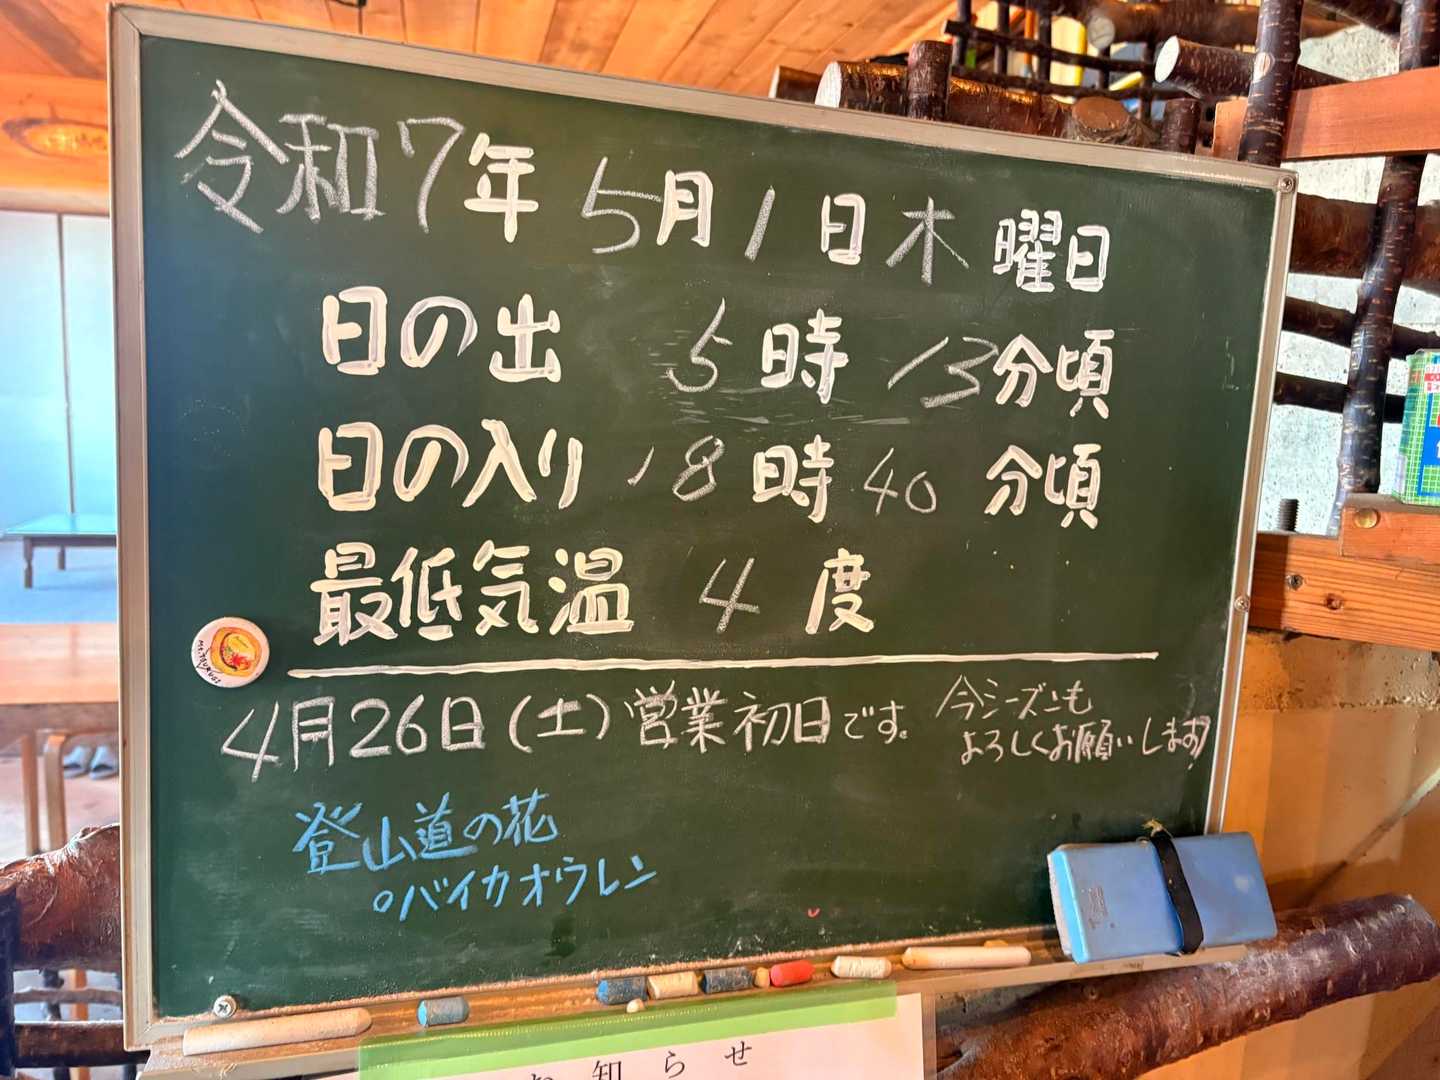 令和7年 5月1日木曜日
日の出 5時13分頃
日の入り 18時40分頃
最低気温 4度
4月26日(土)営業初日です。
今シーズンも
よろしくお願いします
登山道の花
○バイカオウレン
Mt.TSURUGI
お知らせ